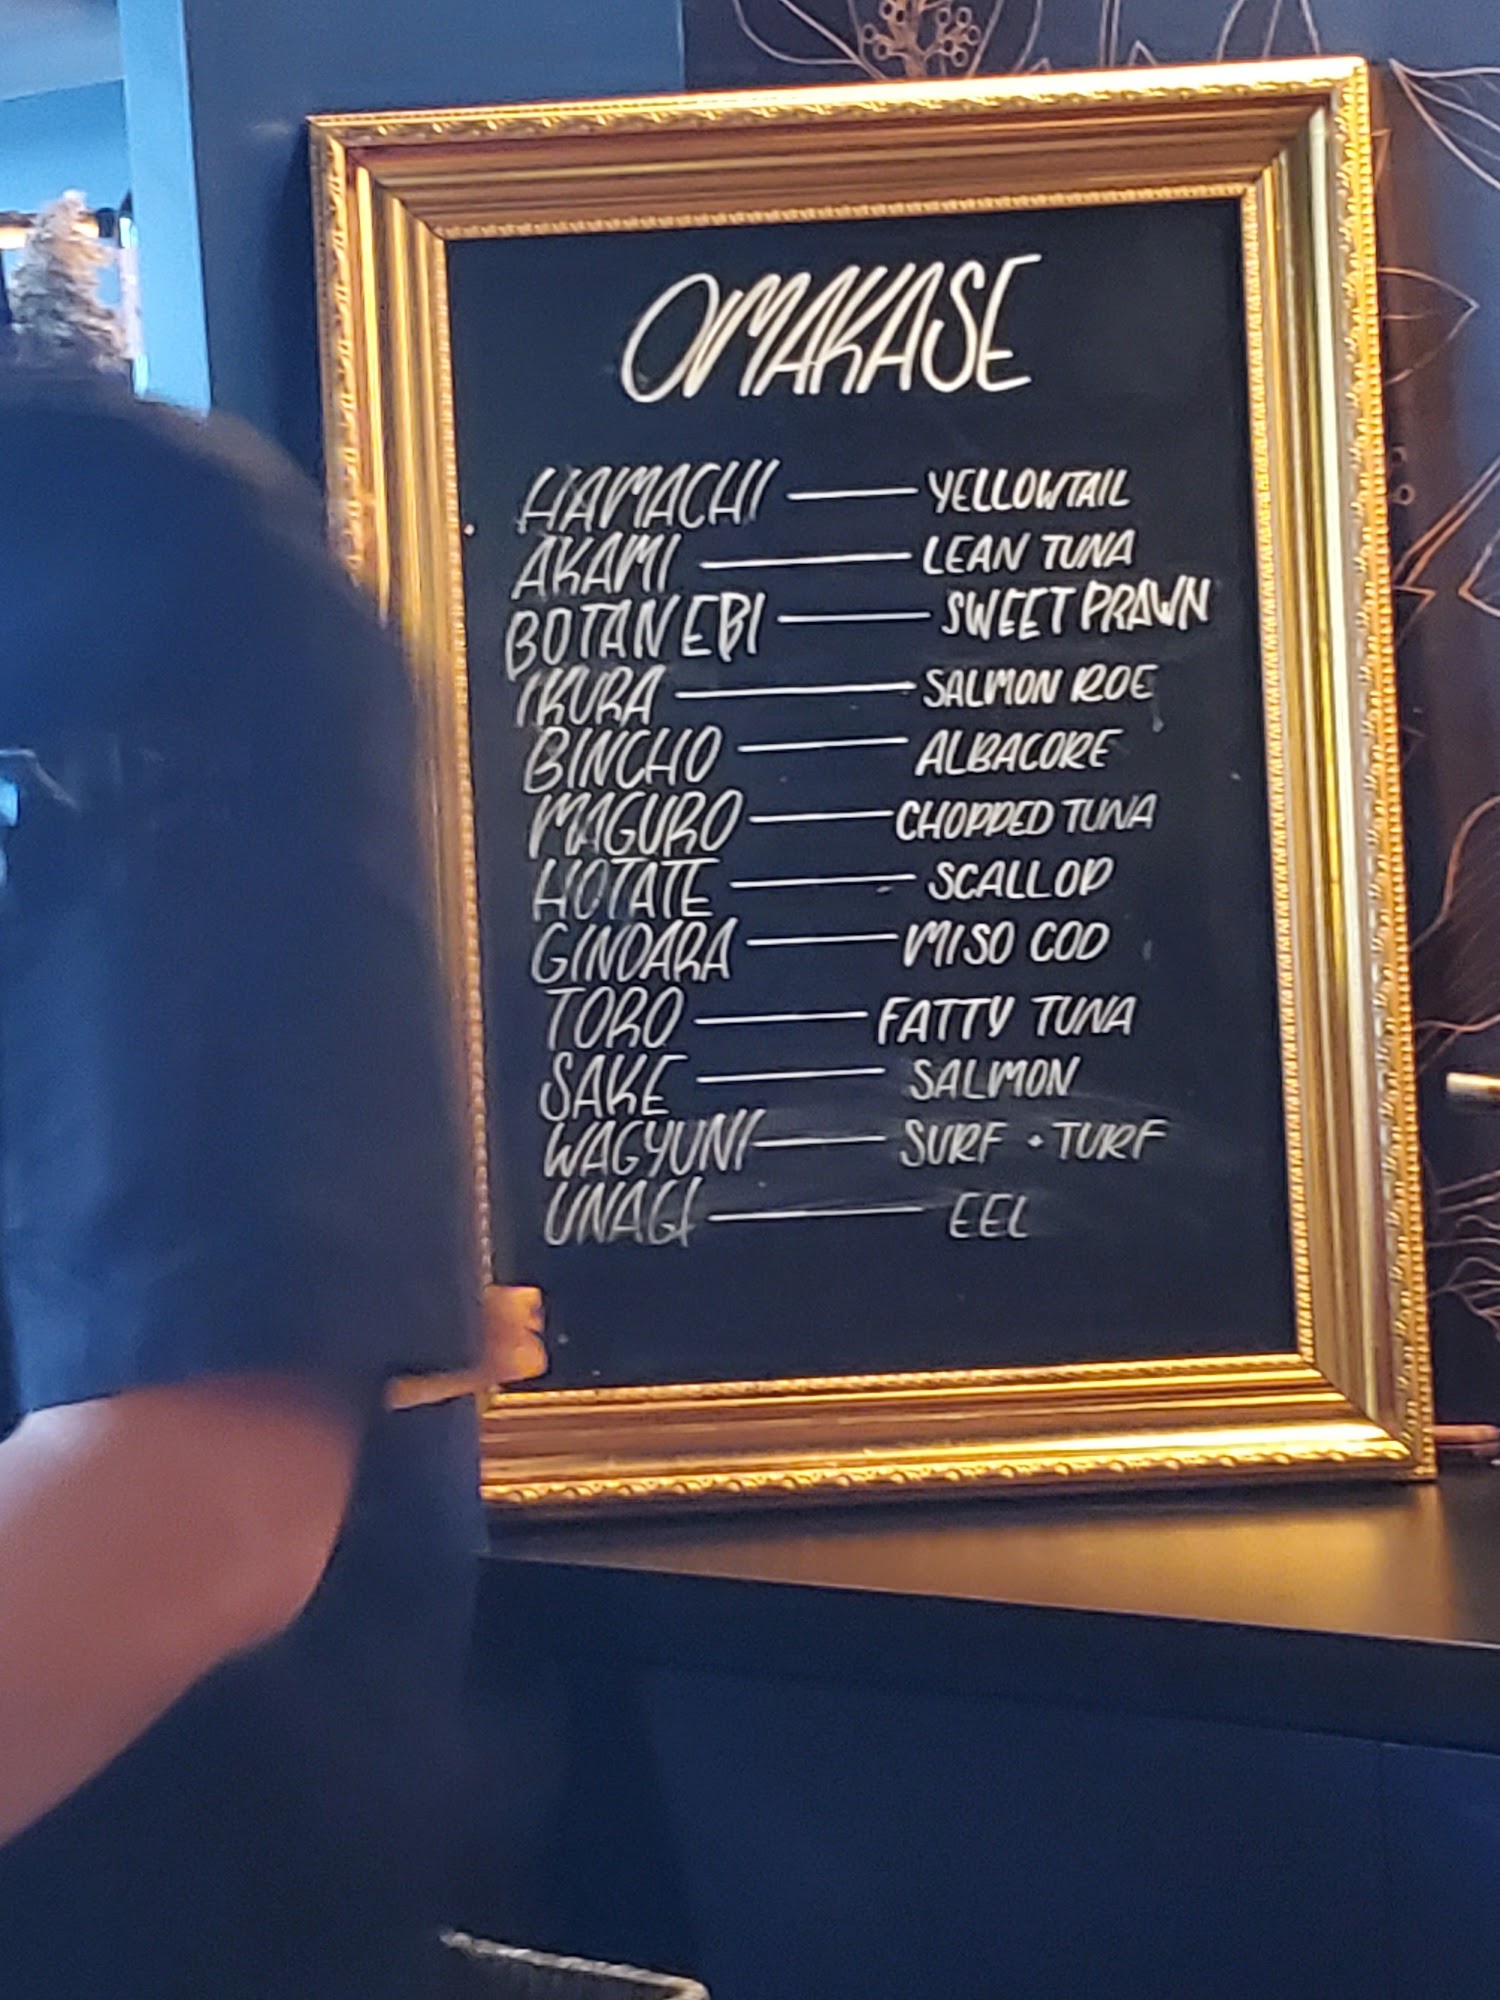 OMAKASE
HAMACHI — YELLOWTAIL
AKAMI — LEAN TUNA
BOTAN EBI — SWEET PRAWN
IKURA — SALMON ROE
BINCHO — ALBACORE
MAGURO — CHOPPED TUNA
HOTATE — SCALLOP
GINDARA — MISO COD
TORO — FATTY TUNA
SAKE — SALMON
WAGYUNI — SURF • TURF
UNAGI — EEL